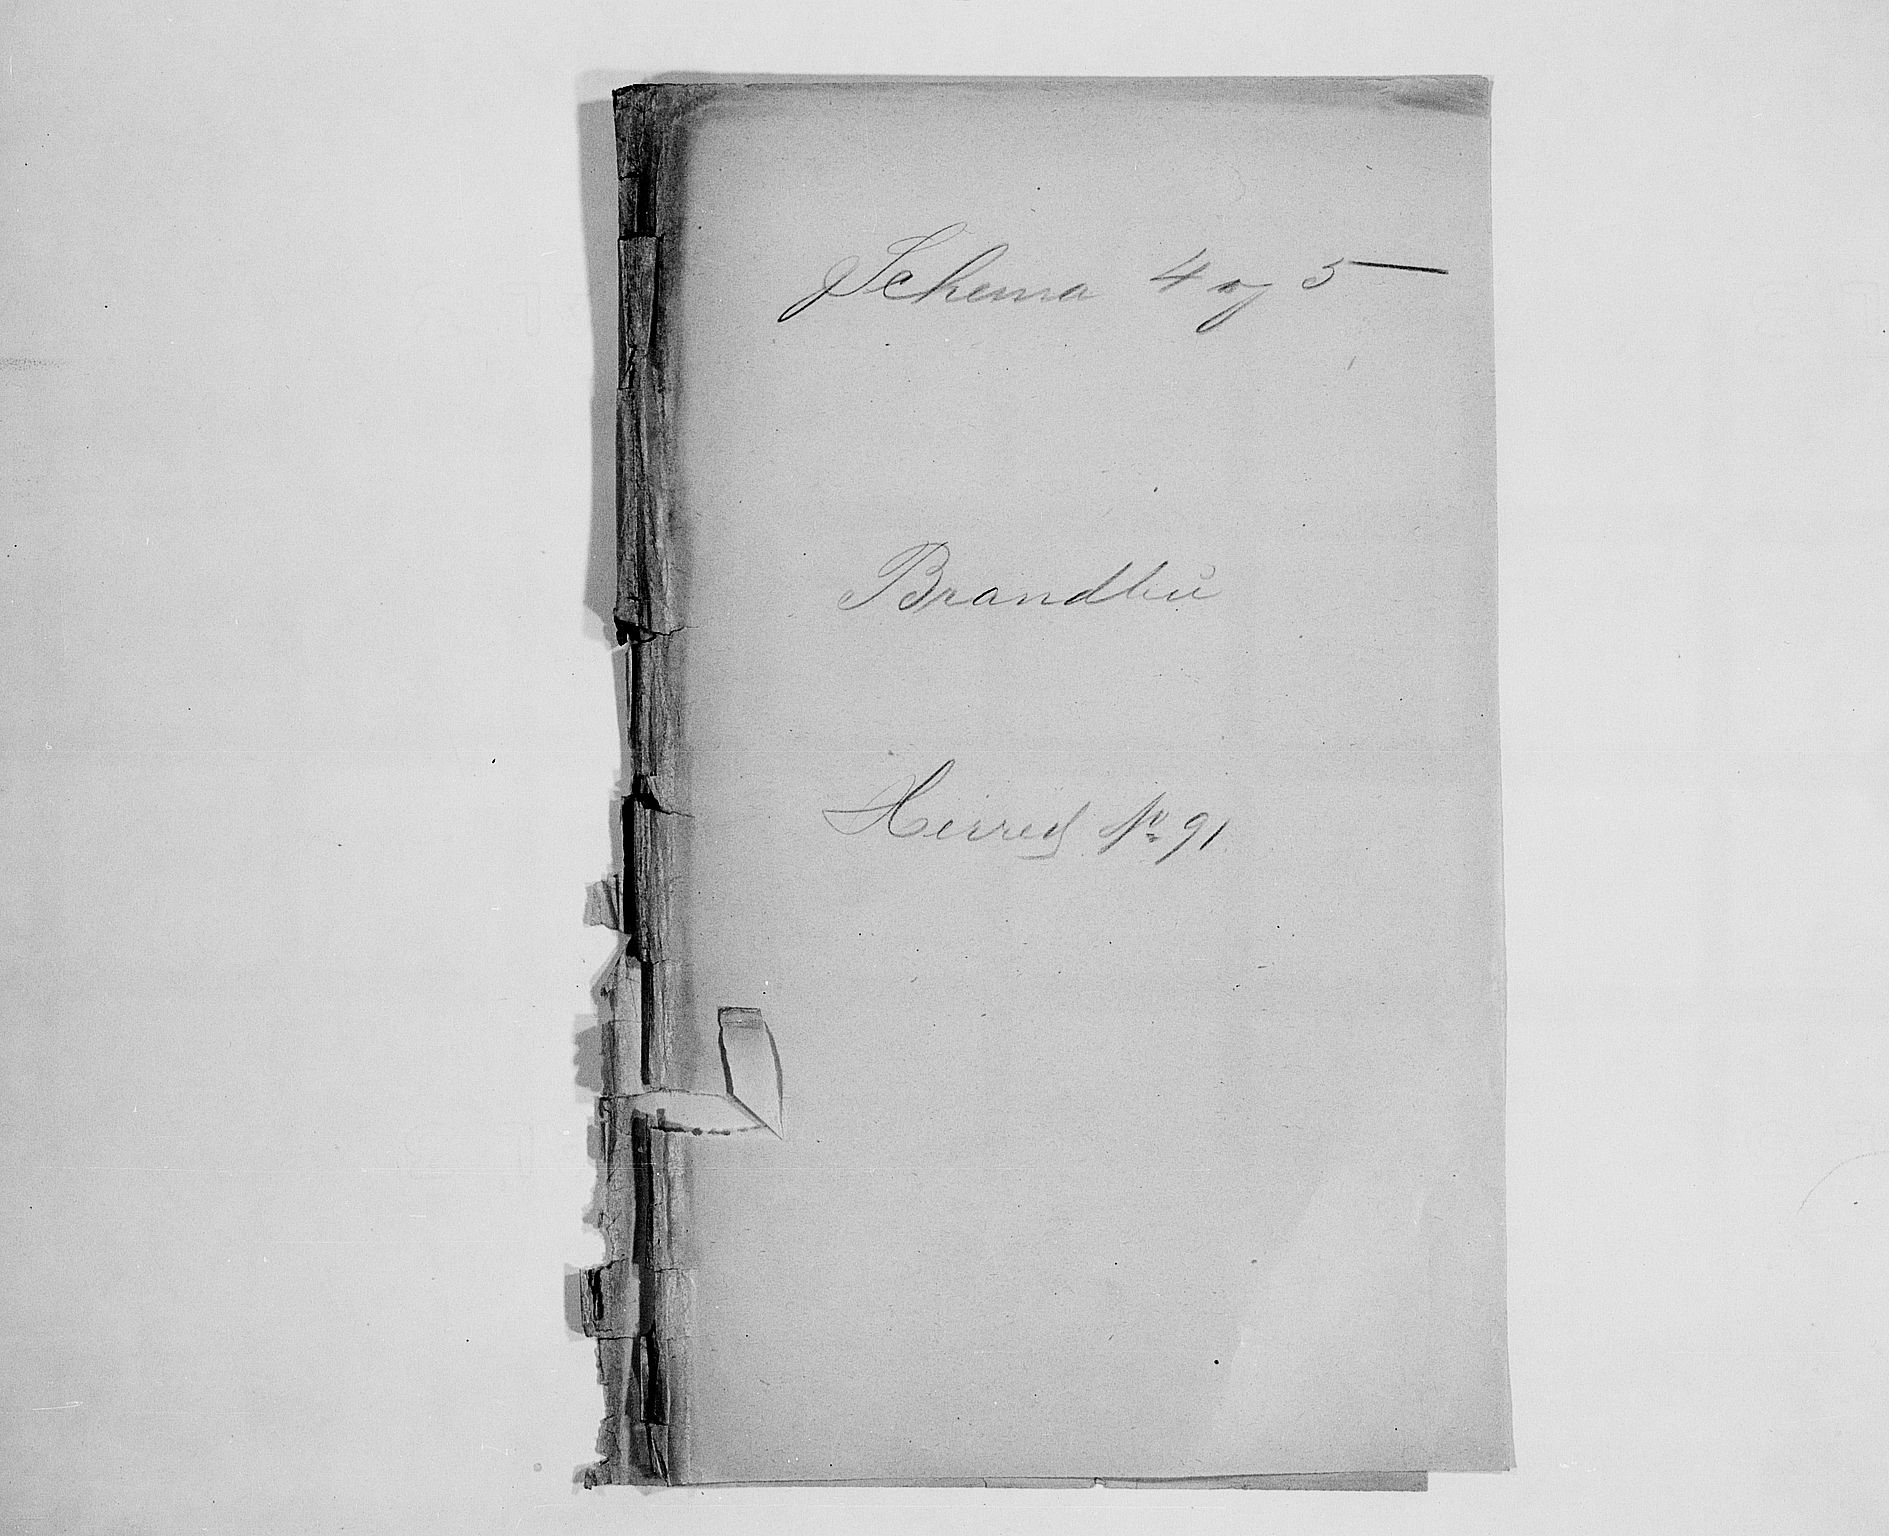 Schema 4 og 5
Brandbu
Herred No 91